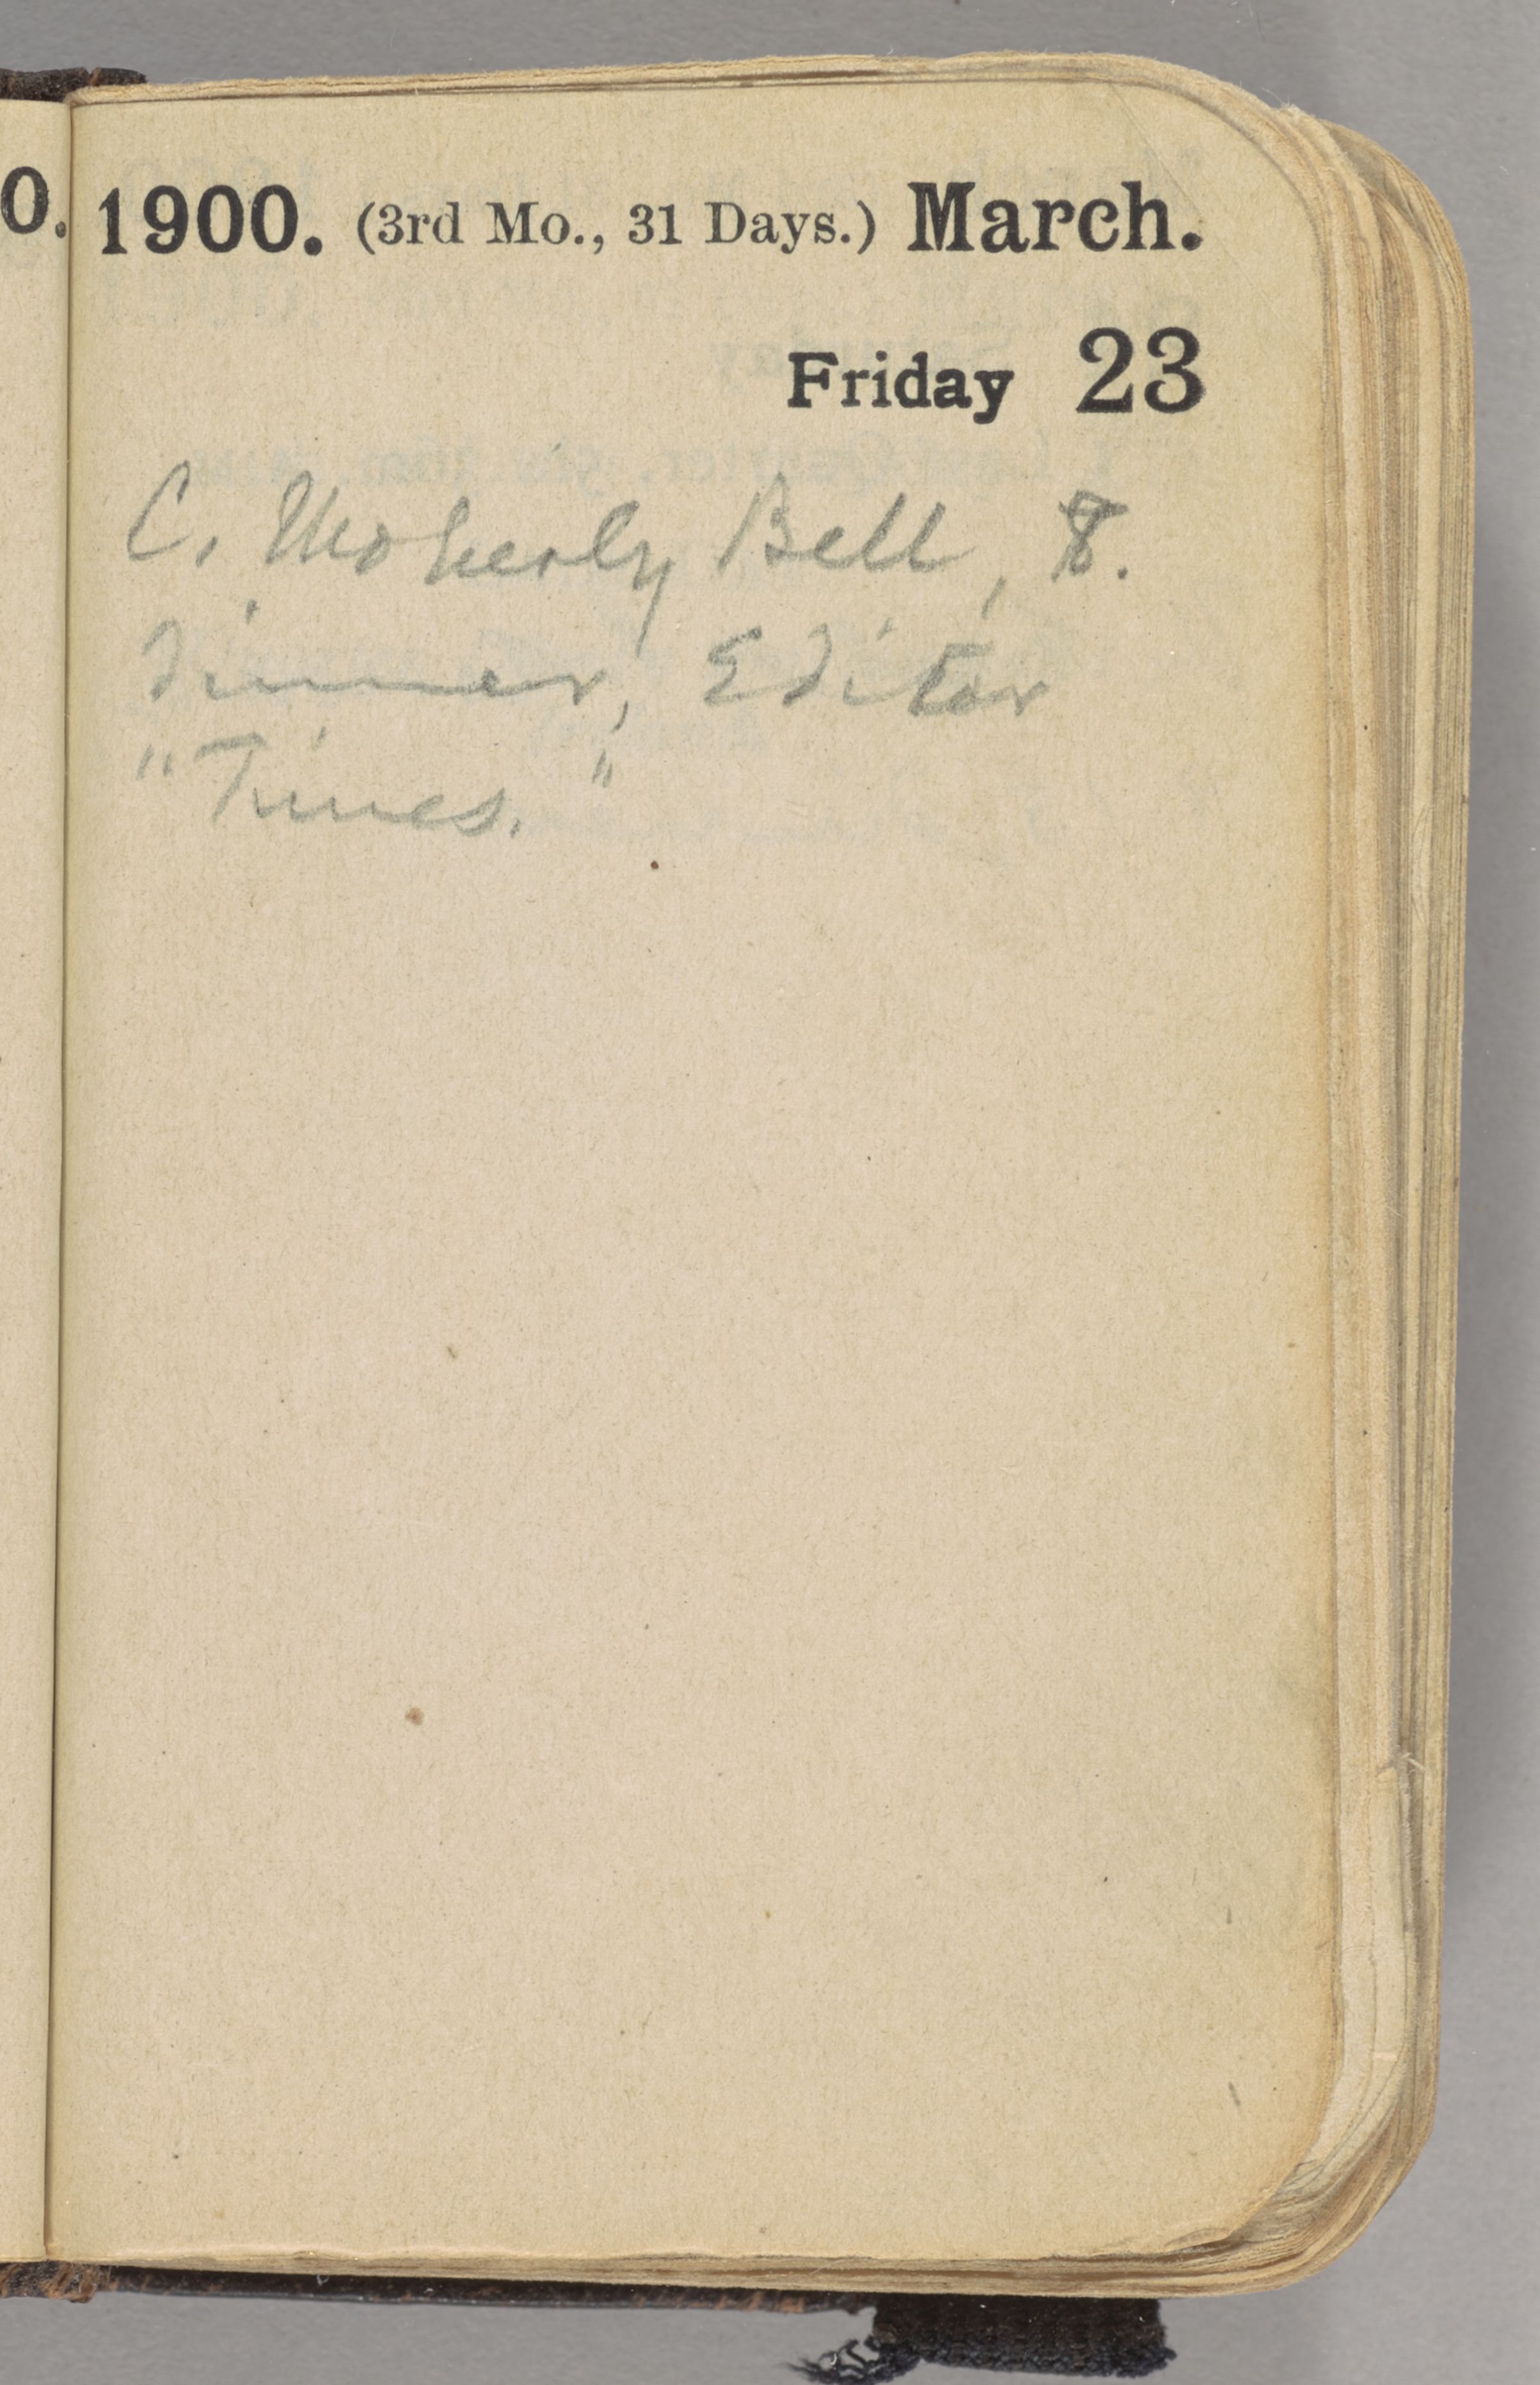 0.
1900. (3rd Mo., 31 Days.) March.
Friday 23
C. Moberly Bell, 8.
Dinner, Editor
"Times."